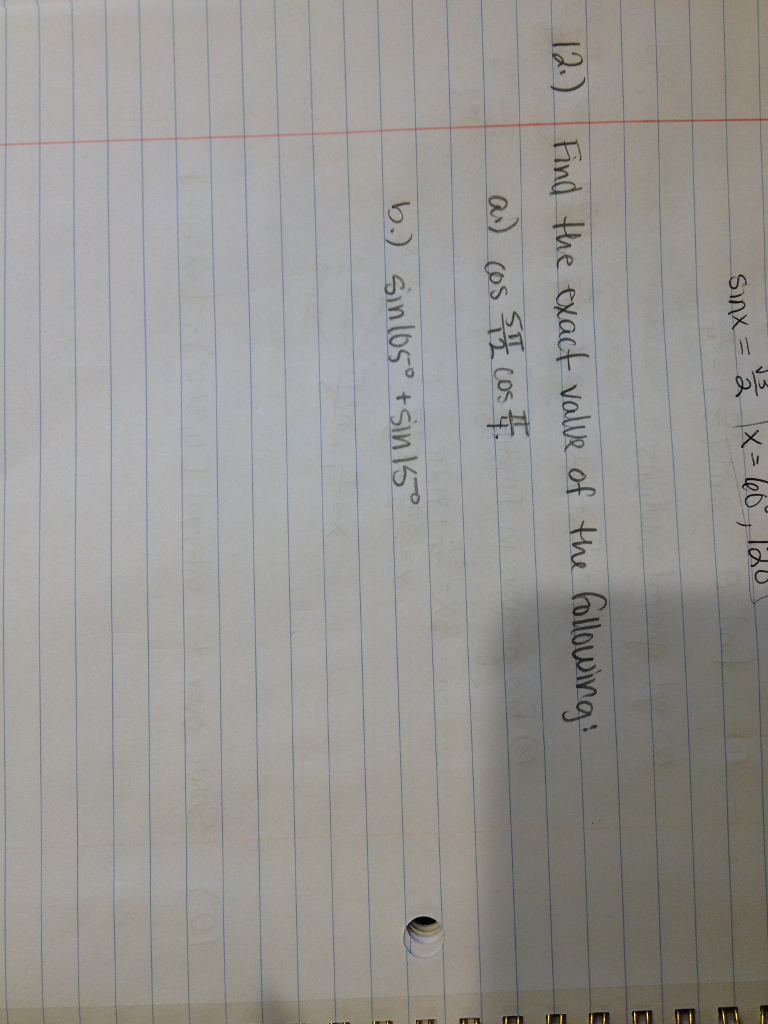 sinx = √3/2 | x = 60°, 120
12.) Find the exact value of the following:
a.) cos 5π/12 cos π/4.
b.) sin105° + sin15°